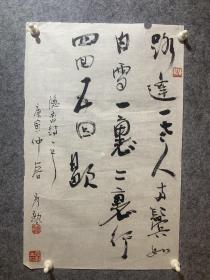 路逢一老人両鬢如
白雪一裏二裏行
四回五回歇
隱巒詩一首
庚寅仲春